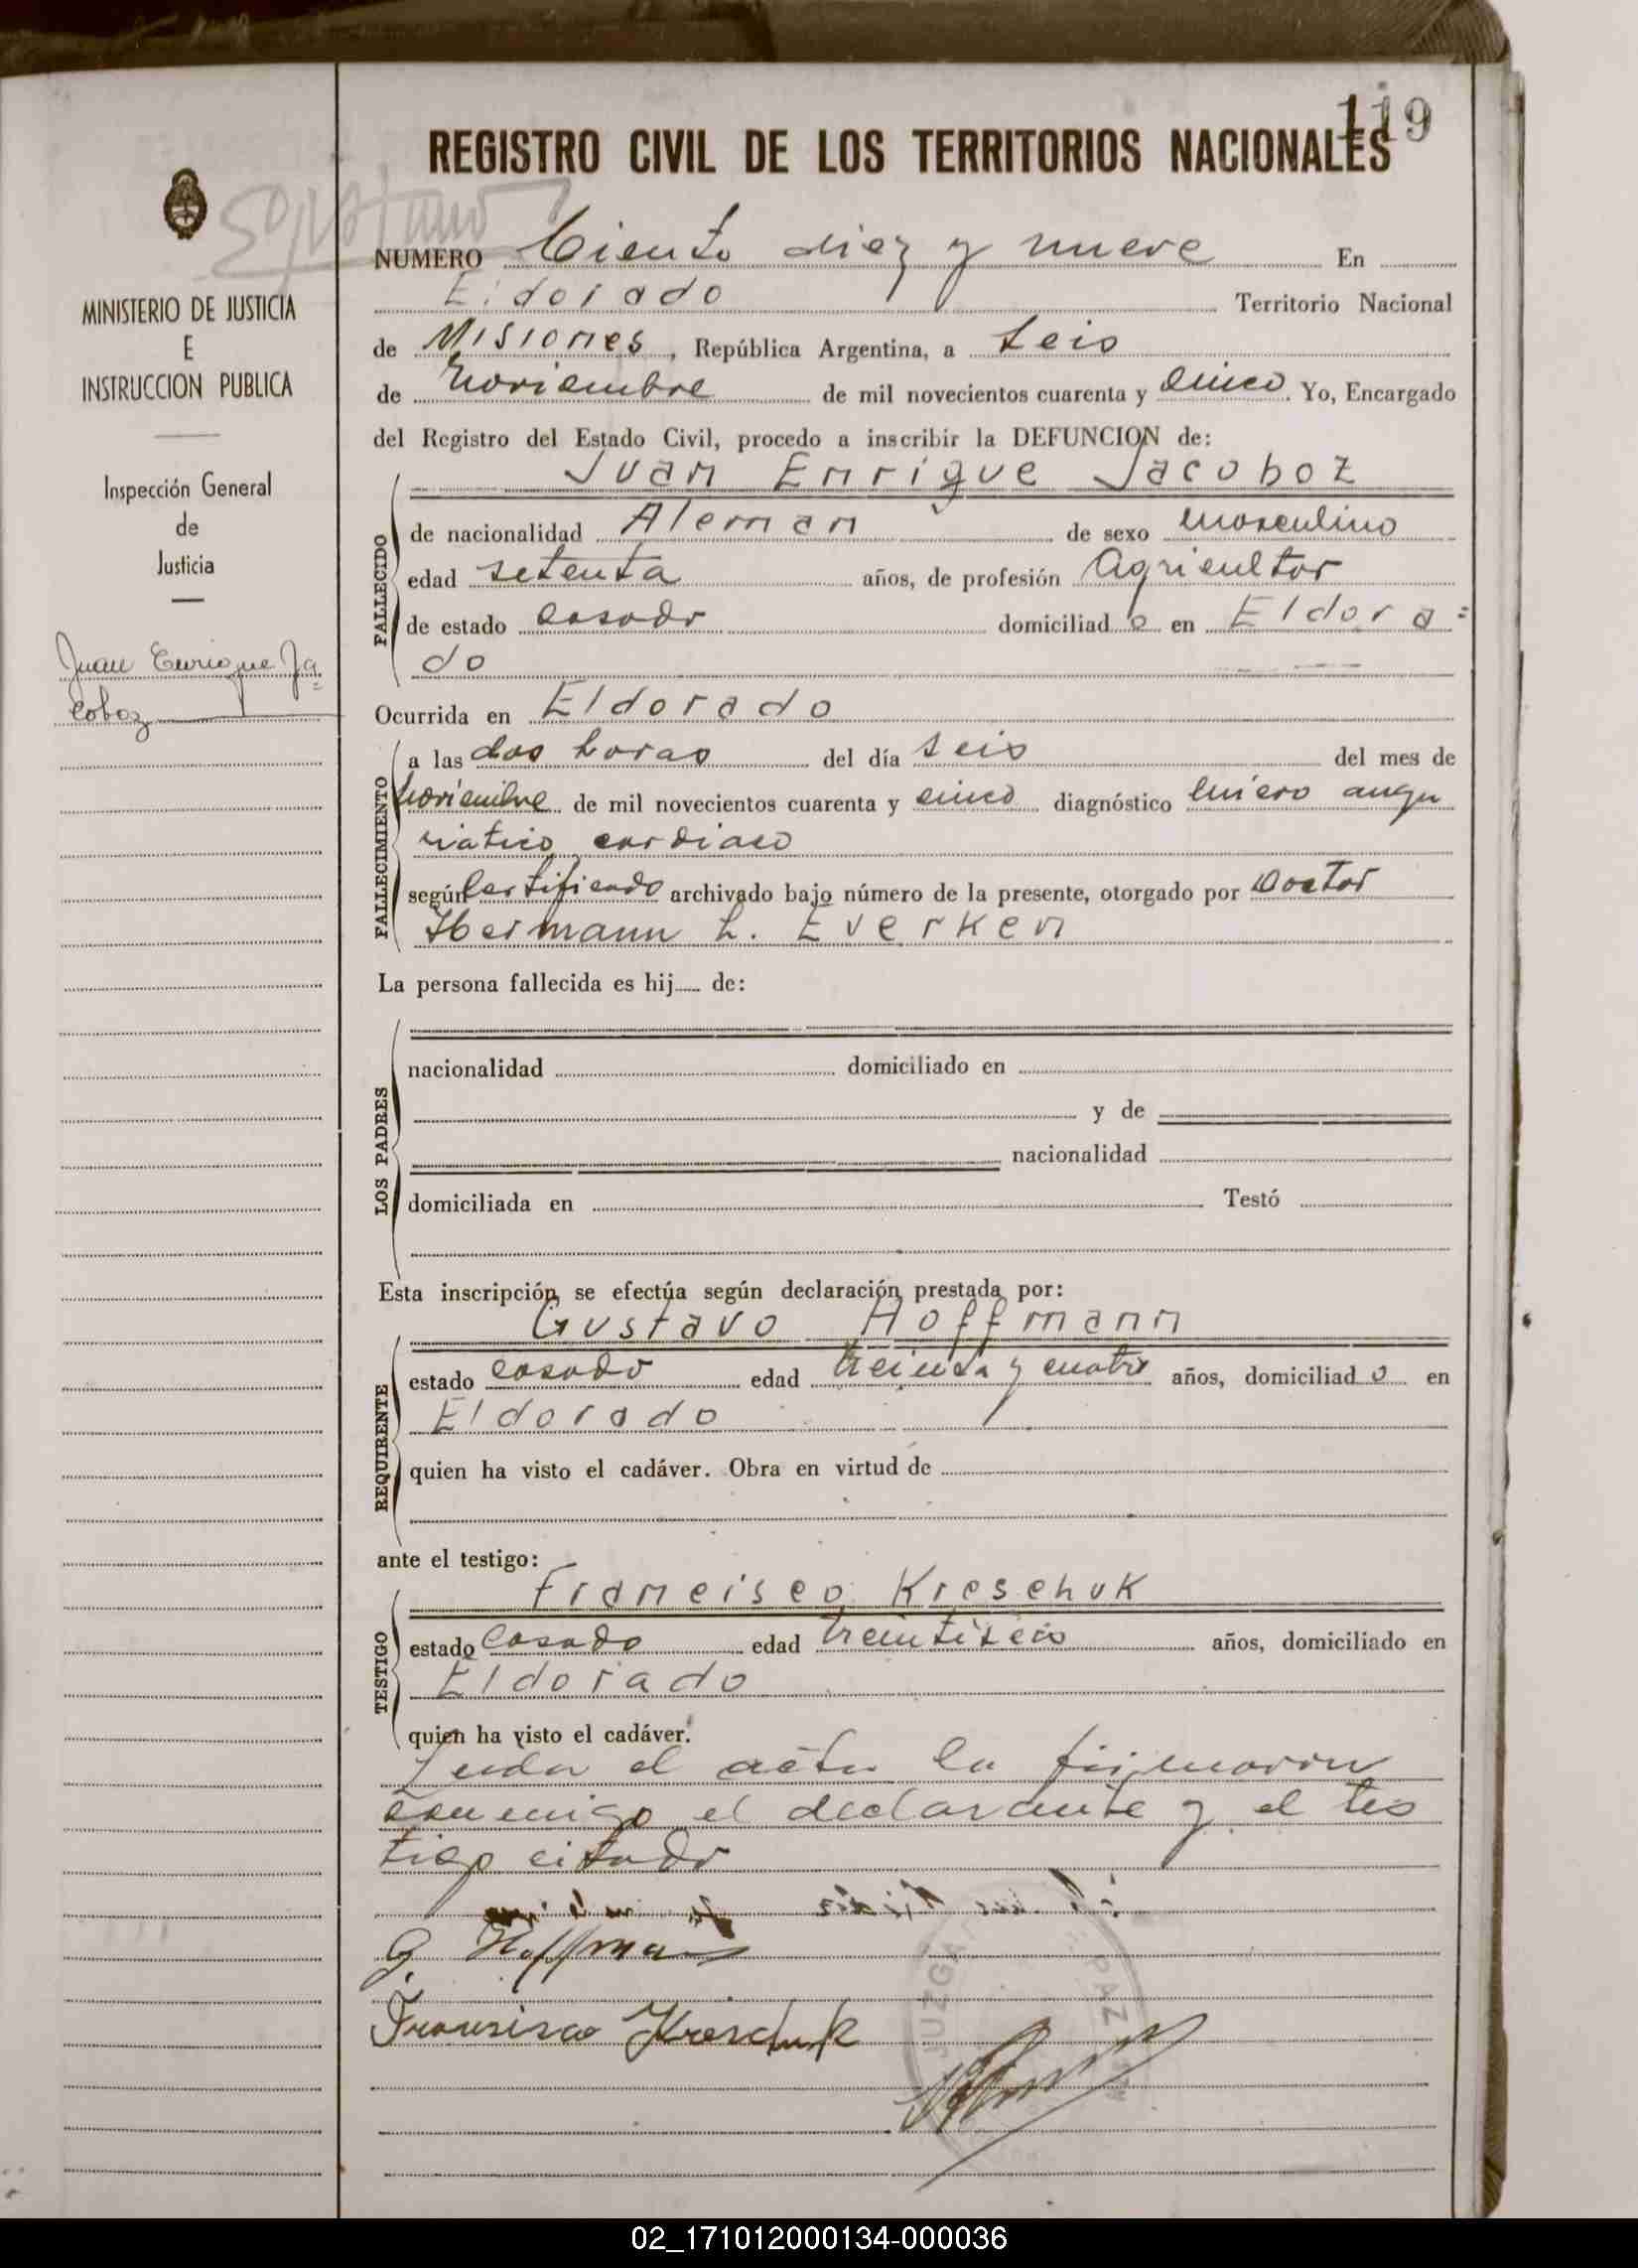 119
REGISTRO CIVIL DE LOS TERRITORIOS NACIONALES
MINISTERIO DE JUSTICIA
E
INSTRUCCION PUBLICA
Inspección General
de
Justicia
Juan Enrique Ja=
coboz
NUMERO Ciento diez y nueve En
Eldorado Territorio Nacional
de Misiones, República Argentina, a seis
de noviembre de mil novecientos cuarenta y cinco. Yo, Encargado
del Registro del Estado Civil, procedo a inscribir la DEFUNCION de:
Juan Enrique Jacoboz
FALLECIDO
de nacionalidad Aleman de sexo masculino
edad setenta años, de profesión Agricultor
de estado casado domiciliado en Eldora=
do
Ocurrida en Eldorado
FALLECIMIENTO
a las dos horas del día seis del mes de
noviembre de mil novecientos cuarenta y cinco diagnóstico
cardiaco
según Certificado archivado bajo número de la presente, otorgado por Doctor
Hermann L. Everken
La persona fallecida es hij de:
LOS PADRES
nacionalidad domiciliado en
y de
nacionalidad
domiciliada en Testó
Esta inscripción se efectúa según declaración prestada por:
Gustavo Hoffmann
REQUIRENTE
estado casado edad treinta y cuatro años, domiciliado en
Eldorado
quien ha visto el cadáver. Obra en virtud de
ante el testigo:
Francisco Kreschuk
TESTIGO
estado casado edad treintiseis años, domiciliado en
Eldorado
quien ha visto el cadáver.
Leida el acta la firmaron
conmigo el declarante y el tes
tigo citado
G. Hoffmann
Francisco Kreschuk
JUZGA PAZ
02_171012000134-000036